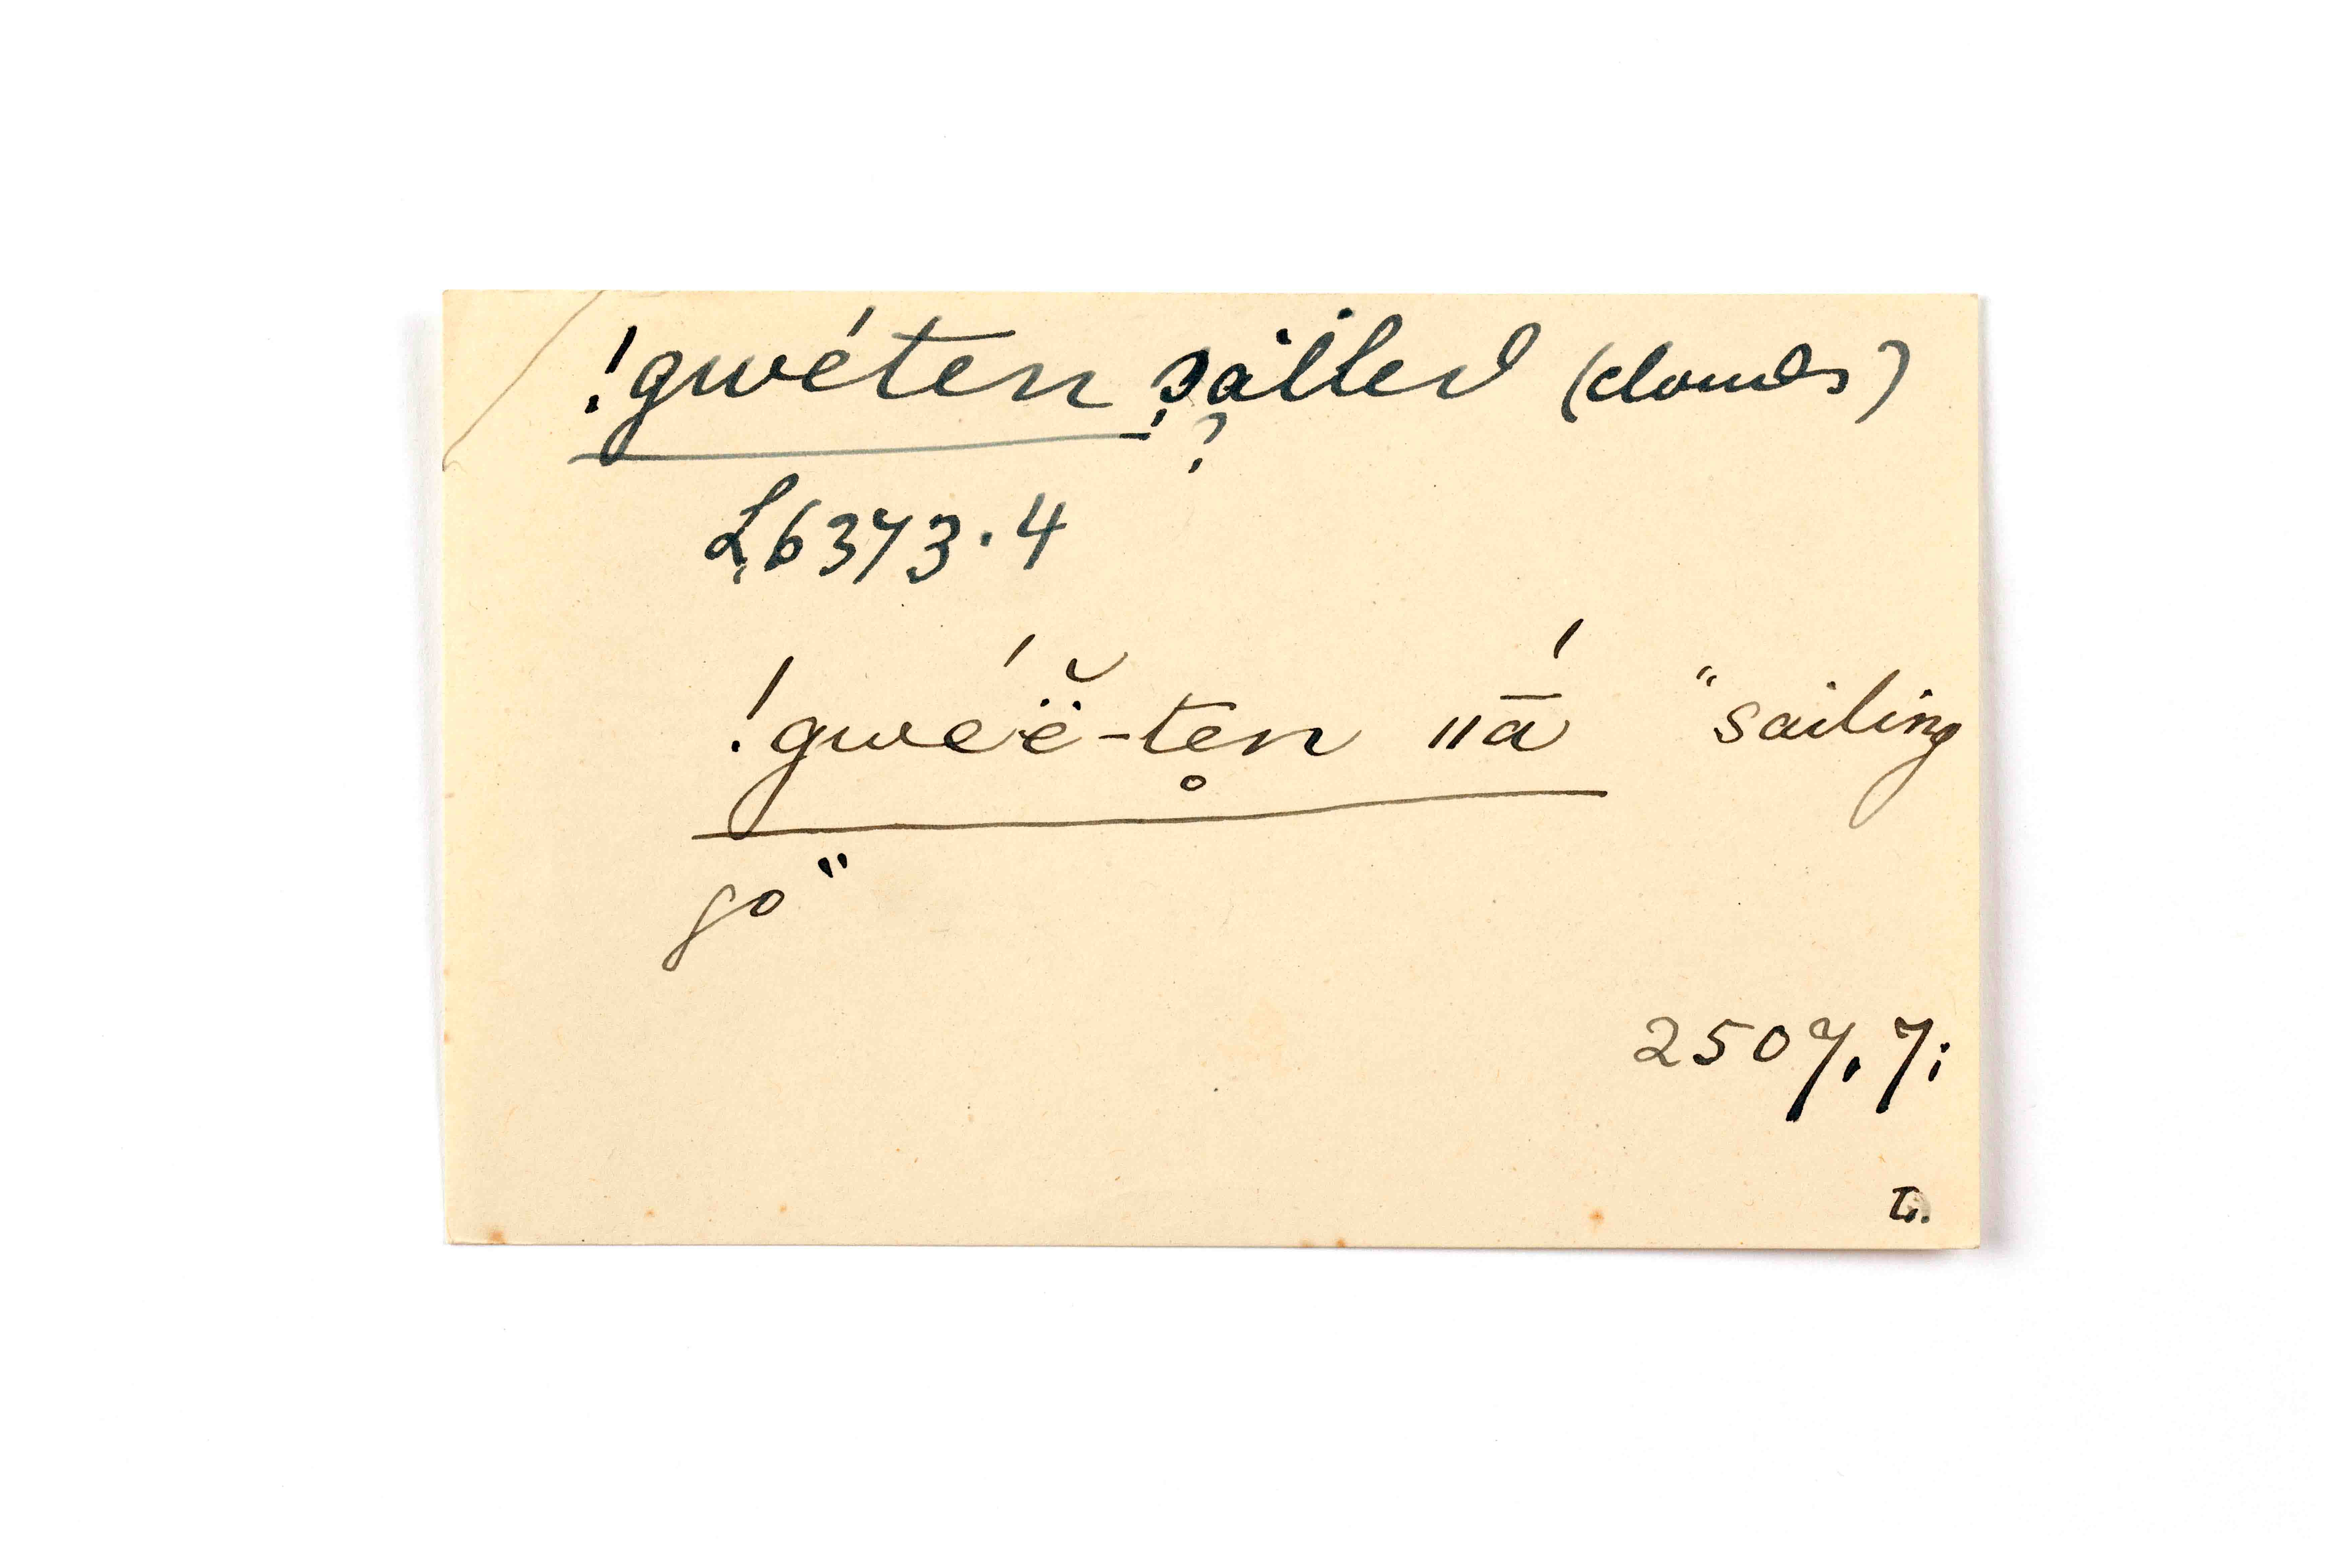 !gwéten sailed (clouds)
?
L 6373.4
!gwéë̆-ten̥ ǁā́ "sailing
go"
2507.7;
L.